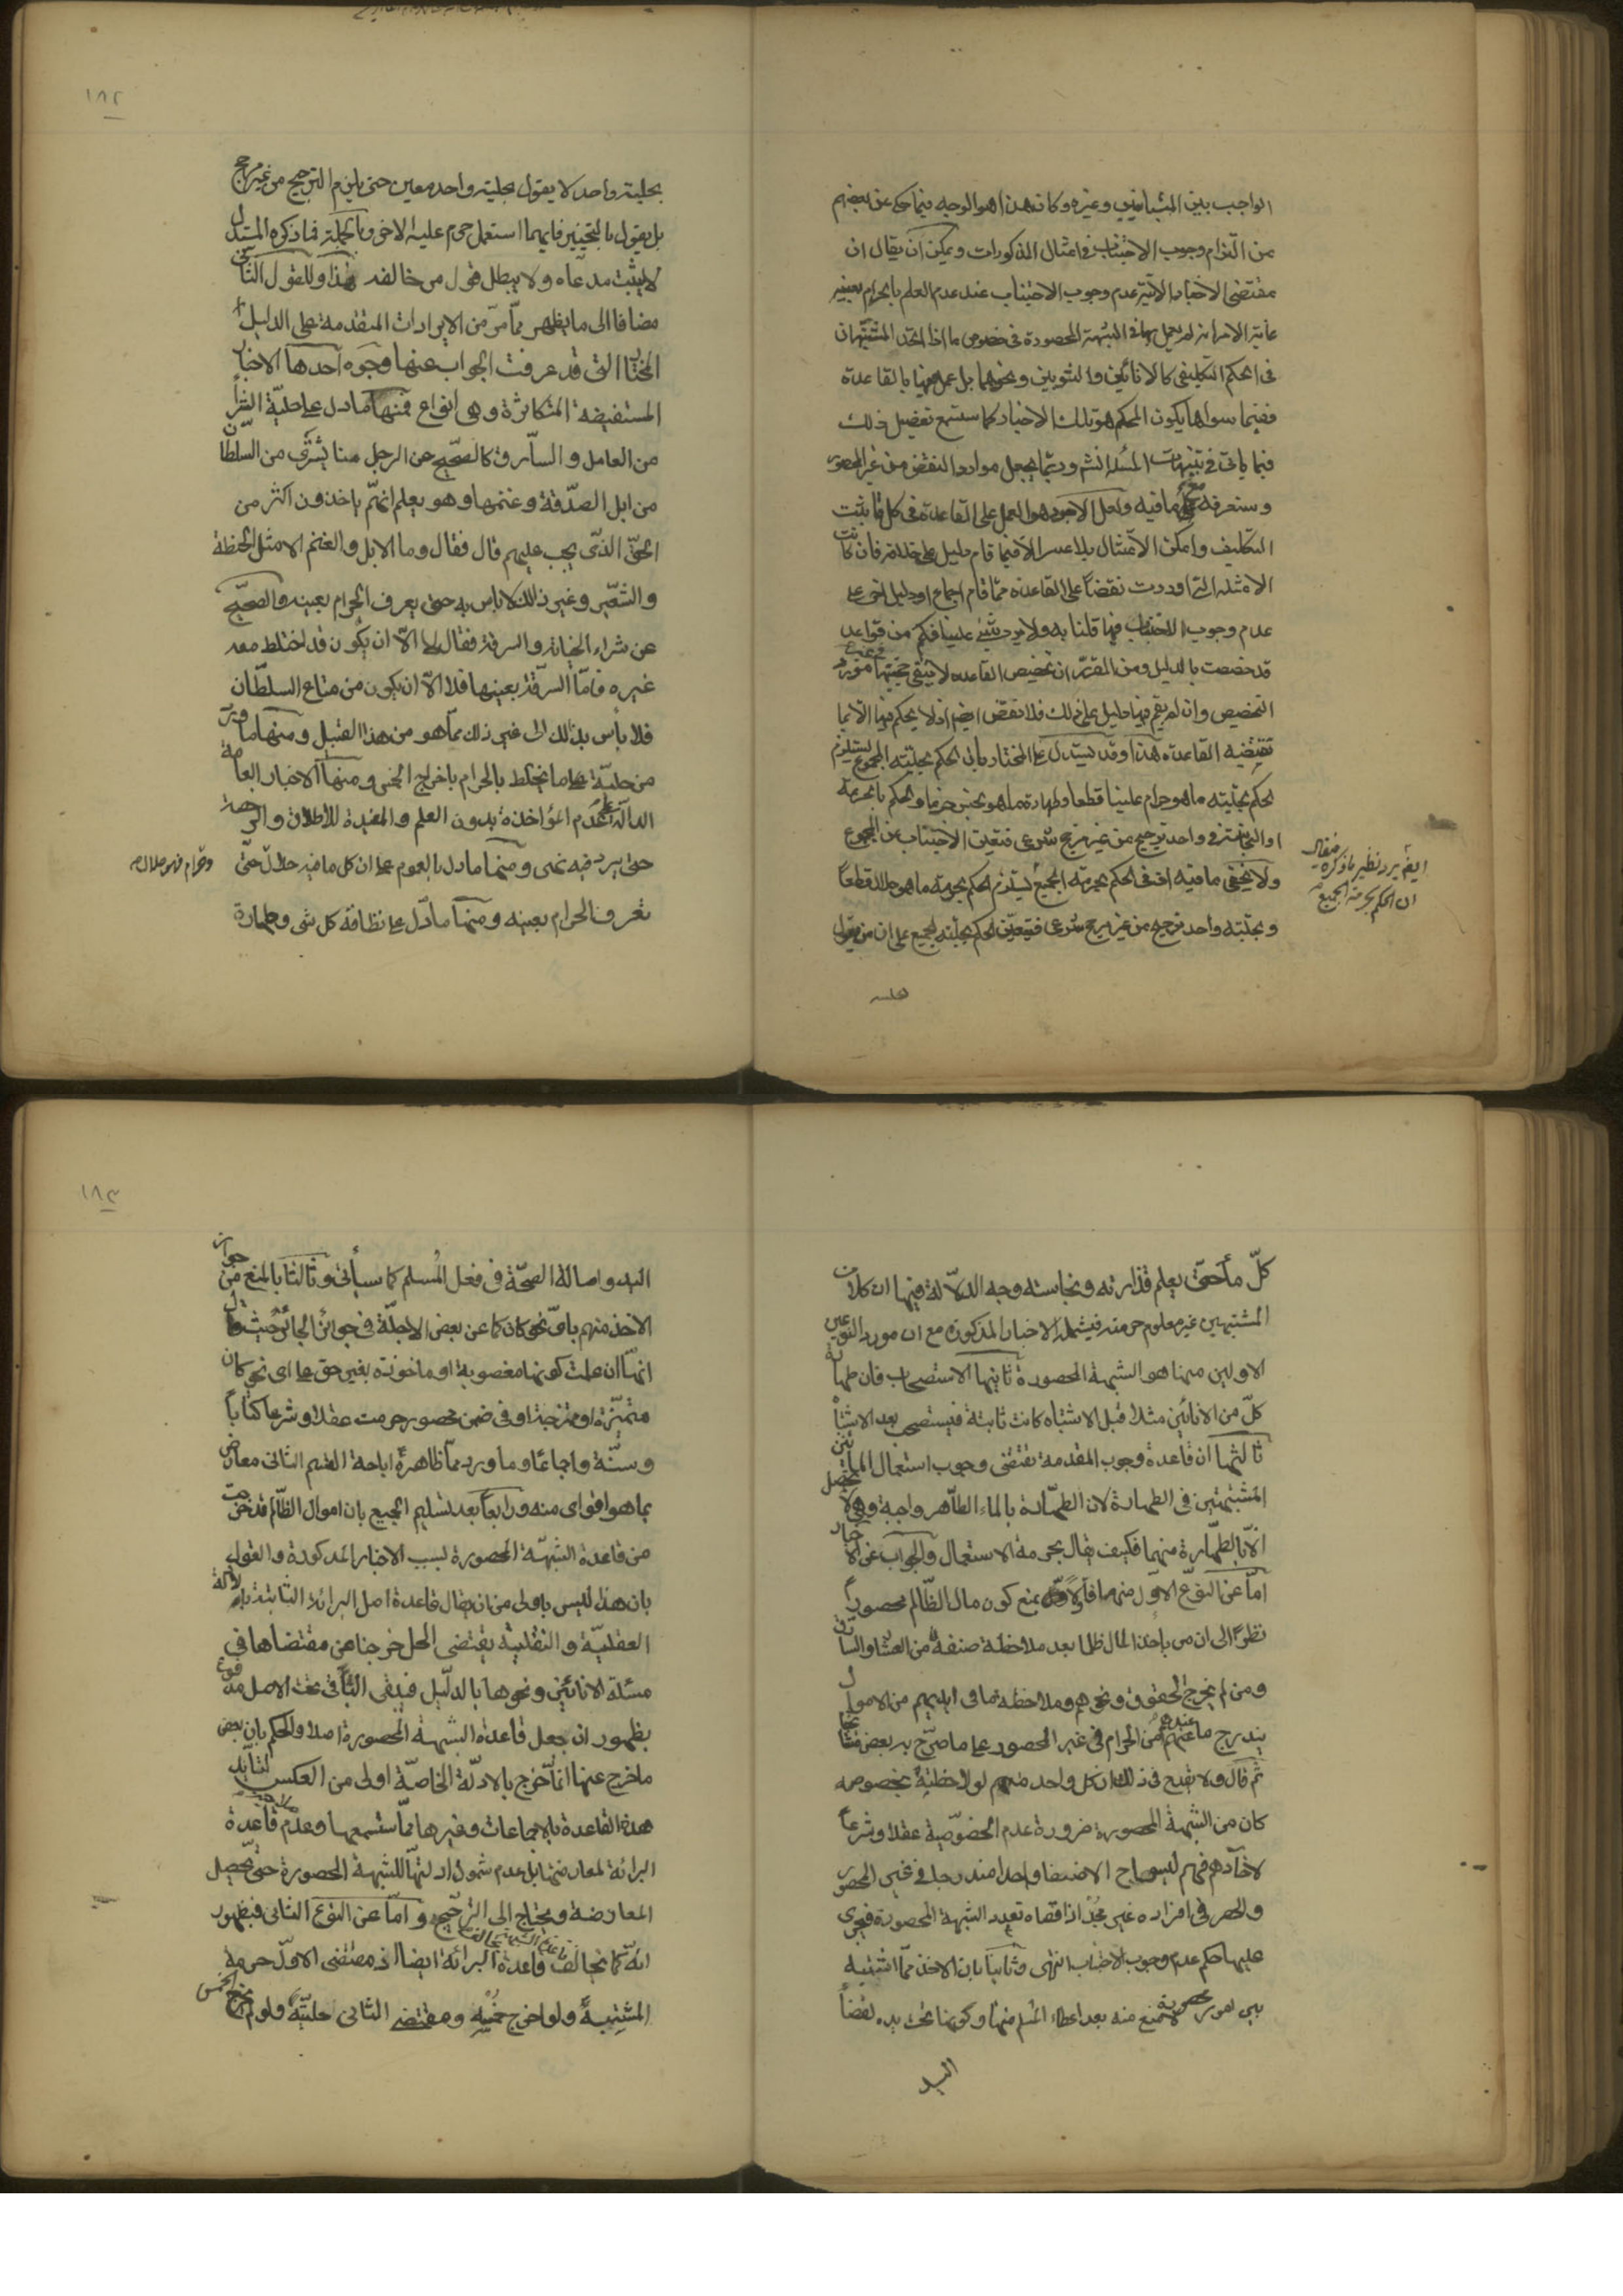 الواجب بين المتباينين وغيره وكان هذا هو الوجه فيما حكى عن بعضهم
من التزام وجوب الاجتناب في امثال المذكورات ويمكن ان يقال ان
مقتضى الاخبار الاتية عدم وجوب الاجتناب عند عدم العلم بالحرام بعينه
غاية الامر انه لم يعمل بها في الشبهة المحصورة في خصوص ما اذا اتحد المشتبهان
في الحكم التكليفي كالانائين والثوبين ونحوهما بل عمل فيها بالقاعدة
ففيما سواها يكون المحكم هو تلك الاخبار كما ستسمع تفصيل ذلك
فيما ياتي في تنبيهات المسئلة انشم وربما يجعل موارد النقض من غير المحصور
وستعرفه مع ما فيه ولعل الاجود هو العمل على القاعدة في كل ما يثبت
التكليف وامكن الامتثال بلا عسر الا فيما قام دليل على خلافه فان كانت
الامثلة التي اوردت نقضا على القاعدة مما قام اجماع او دليل اخر على
عدم وجوب الاجتناب فيها قلنا به ولا يرد شيء علينا فكم من قواعد
قد خصصت بالدليل ومن المقرر ان تخصيص القاعدة لا ينفي حجيتها في غير مورد
التخصيص وان لم يقم فيها دليل على ذلك فلا نقض ايضا اذ لا يحكم فيها الا بما
تقتضيه القاعدة هذا وقد يستدل على المختار بان الحكم بحلية المجموع يستلزم
الحكم بحلية ما هو حرام علينا قطعا وطهارة ما هو نجس جزما والحكم بالحرمة
او النجاسة في واحد ترجيح من غير مرجح شرعي فتعين الاجتناب عن المجموع
ولا يخفى ما فيه اذ في الحكم بحرمة الجميع يستلزم الحكم بحرمة ما هو حلال قطعا
وبحلية واحد ترجيح من غير مرجح شرعي فيتعين الحكم بحلية الجميع على ان من يقول
ايضم يرد نظير ما ذكره فيقال
ان الحكم بحرمة الجميع
بحلية
١٨٢
بحلية واحد لا يقول بحلية واحد معين حتى يلزم الترجيح من غير مرجح
بل يقول بالتخيير فايهما استعمل حرم عليه الاخر وبالجملة فما ذكره المستدل
لا يثبت مدعاه ولا يبطل قول من خالفه هذا وللقول الثاني
مضافا الى ما يظهر مما مر من الايرادات المتقدمة على الدليل
المختار التي قد عرفت الجواب عنها وجوه احدها الاخبار
المستفيضة المتكاثرة وهي انواع فمنها ما دل على حلية الشراء
من العامل والسارق كالصحيح عن الرجل منا يشترى من السلطان
من ابل الصدقة وغنمها وهو يعلم انهم ياخذون اكثر من
الحق الذي يجب عليهم قال فقال وما الابل والغنم الا مثل الحنطة
والشعير وغير ذلك لا باس به حتى يعرف الحرام بعينه والصحيح
عن شراء الخيانة والسرقة فقال لا الا ان يكون قد اختلط معه
غيره فاما السرقة بعينها فلا الا ان يكون من متاع السلطان
فلا باس بذلك الى غير ذلك مما هو من هذا القبيل ومنها ما ورد
من حلية ما يختلط بالحرام باخراج الخمس ومنها الاخبار العامة
الدالة على عدم المؤاخذة بدون العلم والمفيدة للاطلاق والرخصة
حتى يرد فيه نهى ومنها ما دل بالعموم على ان كل ما فيه حلال حتى
وحرام فهو حلال صح
تعرف الحرام بعينه ومنها ما دل على نظافة كل شئ وطهارة
كل ماء حتى يعلم قذارته ونجاسته وجه الدلالة فيها ان كلا من
المشتبهين غير معلوم حرمته فيشمله الاخبار المذكورة مع ان مورد النوعين
الاولين منها هو الشبهة المحصورة ثانيها الاستصحاب فان طهارة
كل من الانائين مثلا قبل الاشتباه كانت ثابتة فيستصحب بعد الاشتباه
ثالثها ان قاعدة وجوب المقدمة تقتضى وجوب استعمال المائين
المشتبهين في الطهارة لان الطهارة بالماء الطاهر واجبة وهي لا تحصل
الا بالطهارة منهما فكيف يقال بحرمة الاستعمال والجواب عن الاخبار
اما عن النوع الاول منها فاولا بمنع كون مال الظالم محصورا
نظرا الى ان من ياخذ المال ظلما بعد ملاحظة صنفه من العشار والسارق
ومن لم يخرج الحقوق ونحوهم وملاحظة ما في ايديهم من الاموال
يندرج ما عندهم من الحرام في غير المحصور على ما صرح به بعض مشايخنا
ثم قال ولا يقدح في ذلك ان كل واحد منهم لو لاحظته بخصوصه
كان من الشبهة المحصورة ضرورة عدم الخصوصية عقلا وشرعا
لآحادهم فهم ليسوا الا صنفا واحدا مندرجا في غير المحصور
والحصر في افراده غير مجد اذ اقصاه تعدد الشبهة المحصورة فيجرى
عليها حكم عدم وجوب الاجتناب انتهى وثانيا بان الاخذ مما اشتبه
بين امور محصورة لا نمنع منه بعد اعطاء المسلم منها وكونها تحت يده لقضاء
اليد
١٨٣
اليد واصالة الصحة في فعل المسلم كما سيأتي وثالثا بالمنع من جواز
الاخذ منهم باى نحو كان كما عن بعض الاجلة في جوائز الجائر حيث قال
انها ان علمت كونها مغصوبة او ماخوذة بغير حق على اى نحو كان
متميزة او ممتزجة او في ضمن محصور حرمت عقلا وشرعا كتابا
وسنة واجماعا وما ورد مما ظاهره اباحة القسم الثاني معارض
بما هو اقوى منه ورابعا بعد تسليم الجميع بان اموال الظالم قد خرجت
من قاعدة الشبهة المحصورة بسبب الاخبار المذكورة والقول
بان هذا ليس باولى من ان يقال قاعدة اصل البرائة الثابتة بالادلة
العقلية والنقلية يقتضى الحل خرجنا عن مقتضاها في
مسئلة الانائين ونحوها بالدليل فيبقى الباقي تحت الاصل مدفوع
بظهور ان جعل قاعدة الشبهة المحصورة اصلا والحكم بان بعض
ما خرج عنها انما خرج بالادلة الخاصة اولى من العكس لتايد
هذه القاعدة بالاجماعات وغيرها مما ستسمعها وعدم صلاحية قاعدة
البرائة لمعارضتها بل عدم شمول ادلتها للشبهة المحصورة حتى يحصل
المعارضة ويحتاج الى الترجيح واما عن النوع الثاني فبظهور
انه كما يخالف قاعدة الشبهة يخالف قاعدة البرائة ايضا اذ مقتضى الاول حرمة
المشتبه ولو اخرج خمسه ومقتضى الثاني حليته ولو لم يخرج الخمس